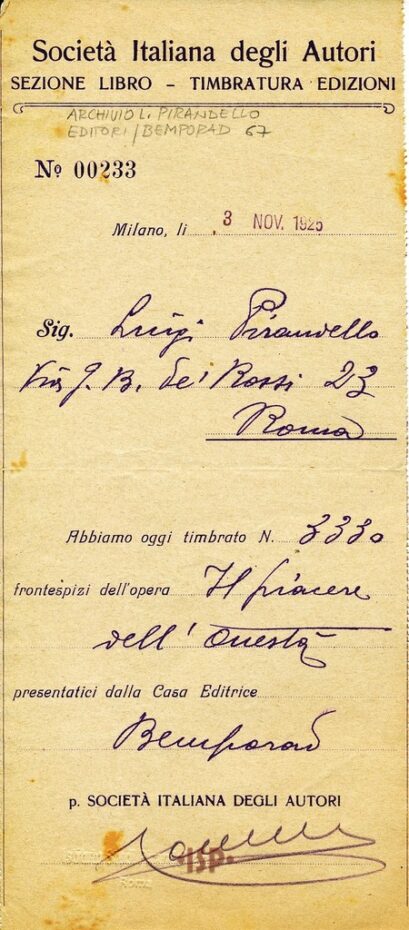 Società Italiana degli Autori
SEZIONE LIBRO – TIMBRATURA EDIZIONI
ARCHIVIO L. PIRANDELLO
EDITORI/BEMPORAD 67
Nº 00233
Milano, li 3 NOV. 1925
Sig. Luigi Pirandello
Via G. B. de' Rossi 23
Roma
Abbiamo oggi timbrato N. 3330
frontespizi dell'opera Il piacere
dell' Onestà
presentatici dalla Casa Editrice
Bemporad
p. SOCIETÀ ITALIANA DEGLI AUTORI